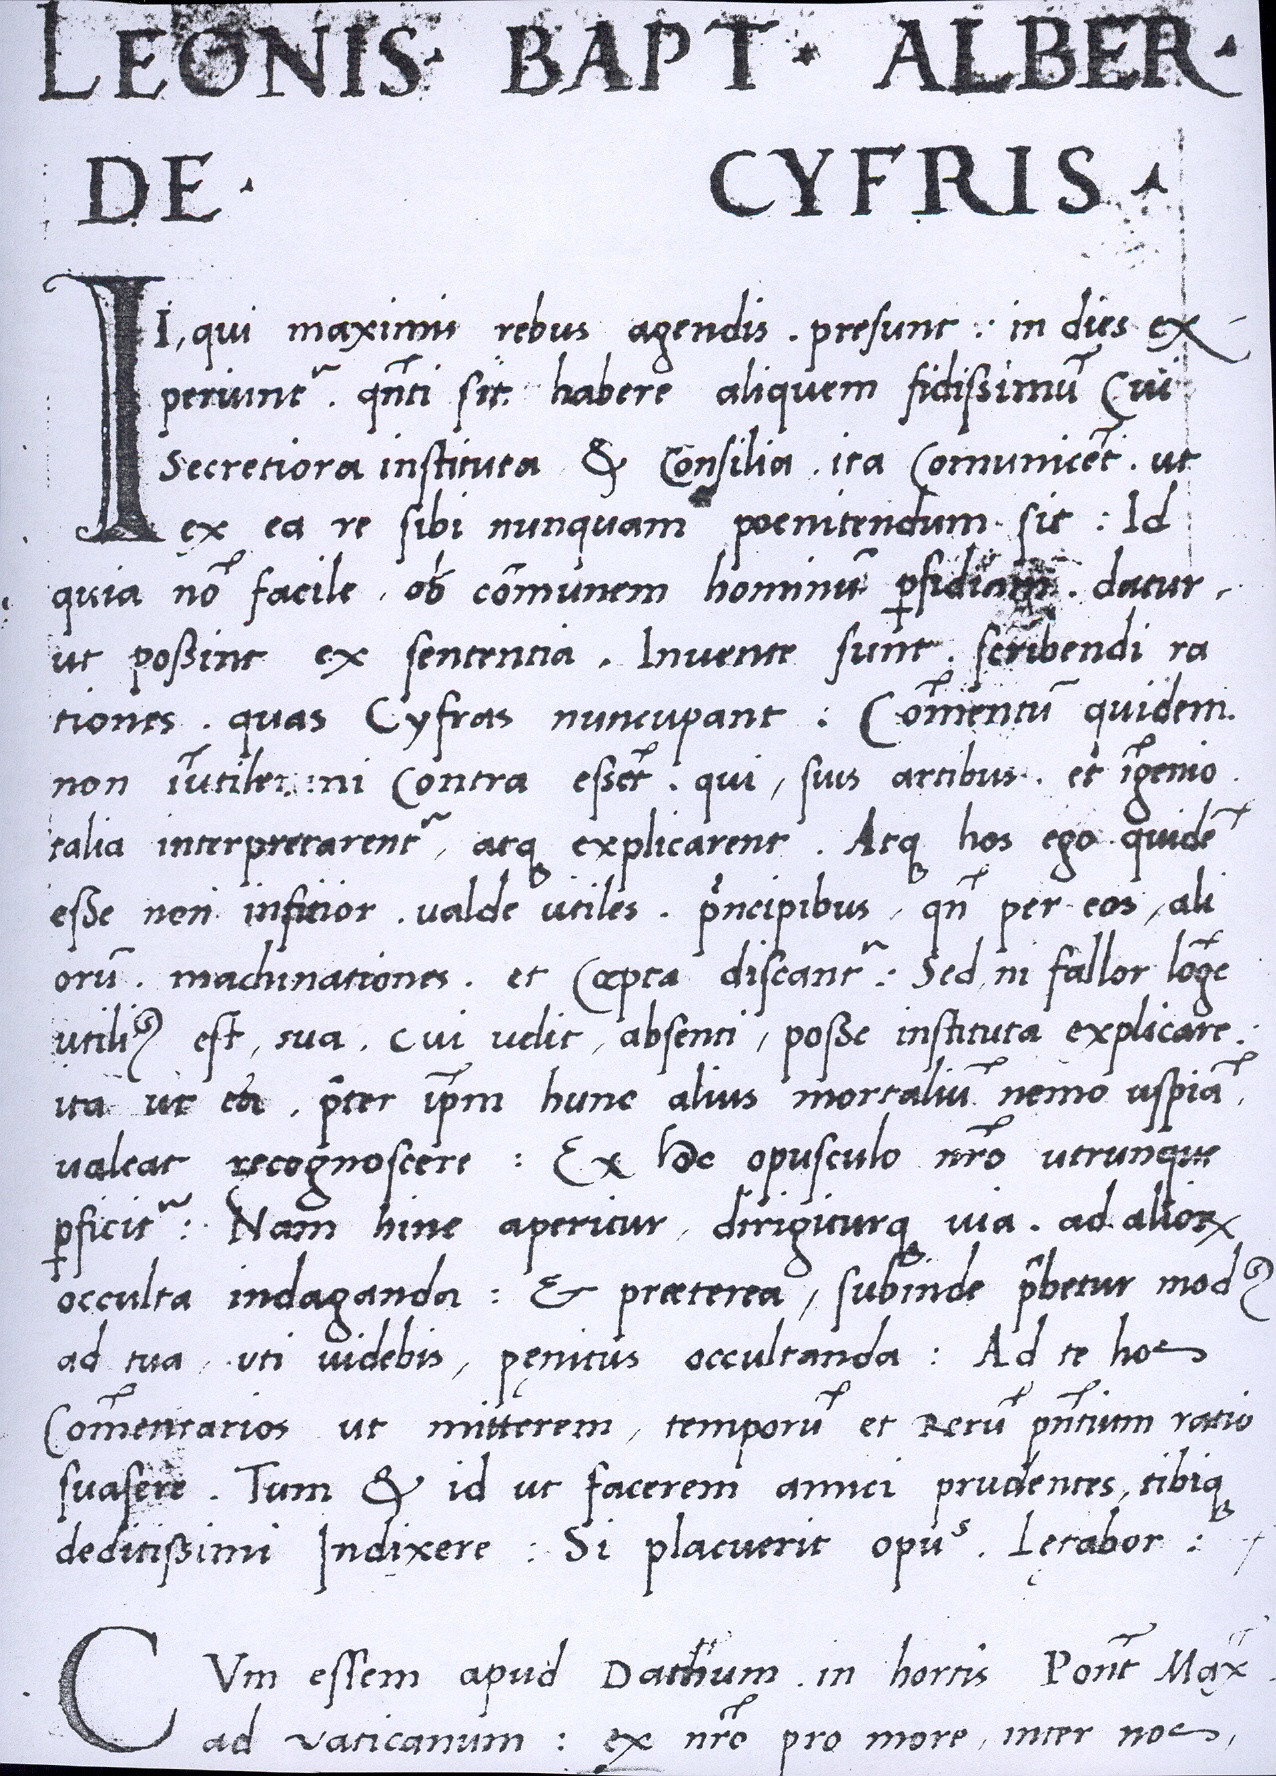 LEONIS· BAPT· ALBER·
DE· CYFRIS·
II, qui maximis rebus agendis . presunt : in dies ex
periunt᷑ . qñti sit habere aliquem fidißimũ Cui
Secretiora instituta & Consilia . ita Comunicẽt . ut
ex ea re sibi nunquam poenitendum sit : Id
quia nõ facile , ob cõmunem hominũ ꝑfidiam . datur ,
ut poßint ex sententia . Invente sunt . scribendi ra
tiones . quas Cyfras nuncupant : Cõmentũ quidem .
non ĩutile ni Contra eßẽt . qui , suis artibus . et ĩgenio .
talia interpretarent᷑ , atqꝫ explicarent . Atqꝫ hos ego quidẽ
eße non infitior . valde utiles . p̃ncipibus , qñ per eos , ali
orũ . machinationes . et Cœpta discant᷑ : Sed , ni fallor lõge
utiliꝰ est , sua . Cui velit , absenti , poße instituta explicare :
ita ut ea . p̃ter ip̃m hunc alius mortaliũ nemo uspiã ,
valeat recognoscere : Ex hoc opusculo nr̃o utrunque
ꝑficit᷑ : Nam hinc aperitur , dirigiturqꝫ via . ad alioꝝ
occulta indaganda : & præterea , subinde p̃betur modꝰ
ad tua , uti uidebis , pęnitus occultanda : Ad te hos
Cõmentarios ut mitterem , temporũ et Rerũ pñtium ratio
suasere . Tum & id ut facerem amici prudentes , tibiqꝫ
deditißimi Indixere : Si placuerit opuˢ . Lętabor :
CVm essem apud Dathum . in hortis Pont̃ Max̃ .
ad vaticanum : ex nr̃o pro more , inter nos ,